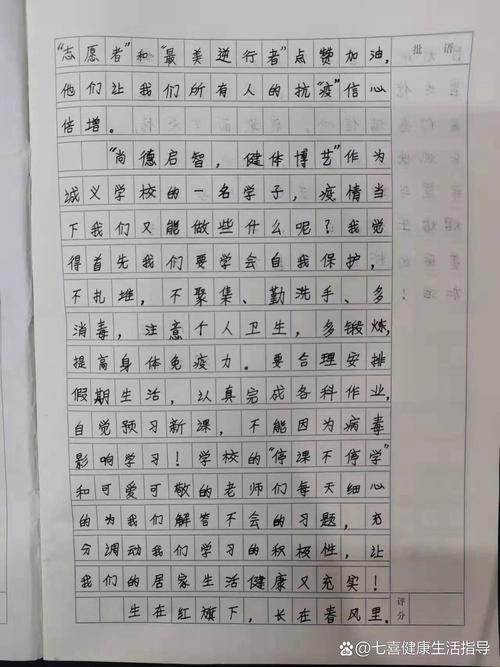 批 语
“志愿者”和“最美逆行者”点赞加油,
他们让我们所有人的抗“疫”信心
倍增。
“尚德启智，健体博艺”作为
诚义学校的一名学子，疫情当
下我们又能做些什么呢？我觉
得首先我们要学会自我保护，
不扎堆，不聚集、勤洗手、多
消毒，注意个人卫生，多锻炼,
提高身体免疫力。要合理安排
假期生活，认真完成各科作业,
自觉预习新课，不能因为病毒
影响学习！学校的“停课不停学”
和可爱可敬的老师们每天细心
的为我们解答不会的习题，充
分调动我们学习的积极性，让
我们的居家生活健康又充实！
生在红旗下，长在春风里.
评分
@七喜健康生活指导